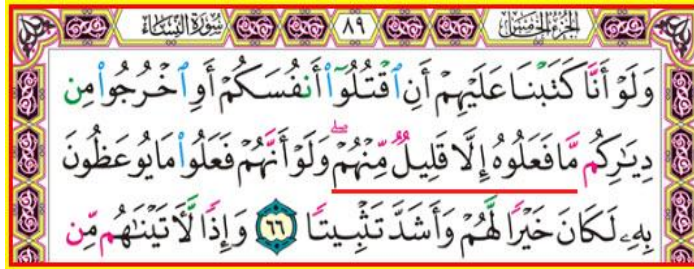 الجزء الخامس ٨٩ سورة النساء
وَلَوْ أَنَّا كَتَبْنَا عَلَيْهِمْ أَنِ ٱقْتُلُوٓا۟ أَنفُسَكُمْ أَوِ ٱخْرُجُوا۟ مِن
دِيَـٰرِكُم مَّا فَعَلُوهُ إِلَّا قَلِيلٌ مِّنْهُمْ ۖ وَلَوْ أَنَّهُمْ فَعَلُوا۟ مَا يُوعَظُونَ
بِهِۦ لَكَانَ خَيْرًا لَّهُمْ وَأَشَدَّ تَثْبِيتًا ٦٦ وَإِذًا لَّـَٔاتَيْنَـٰهُم مِّن